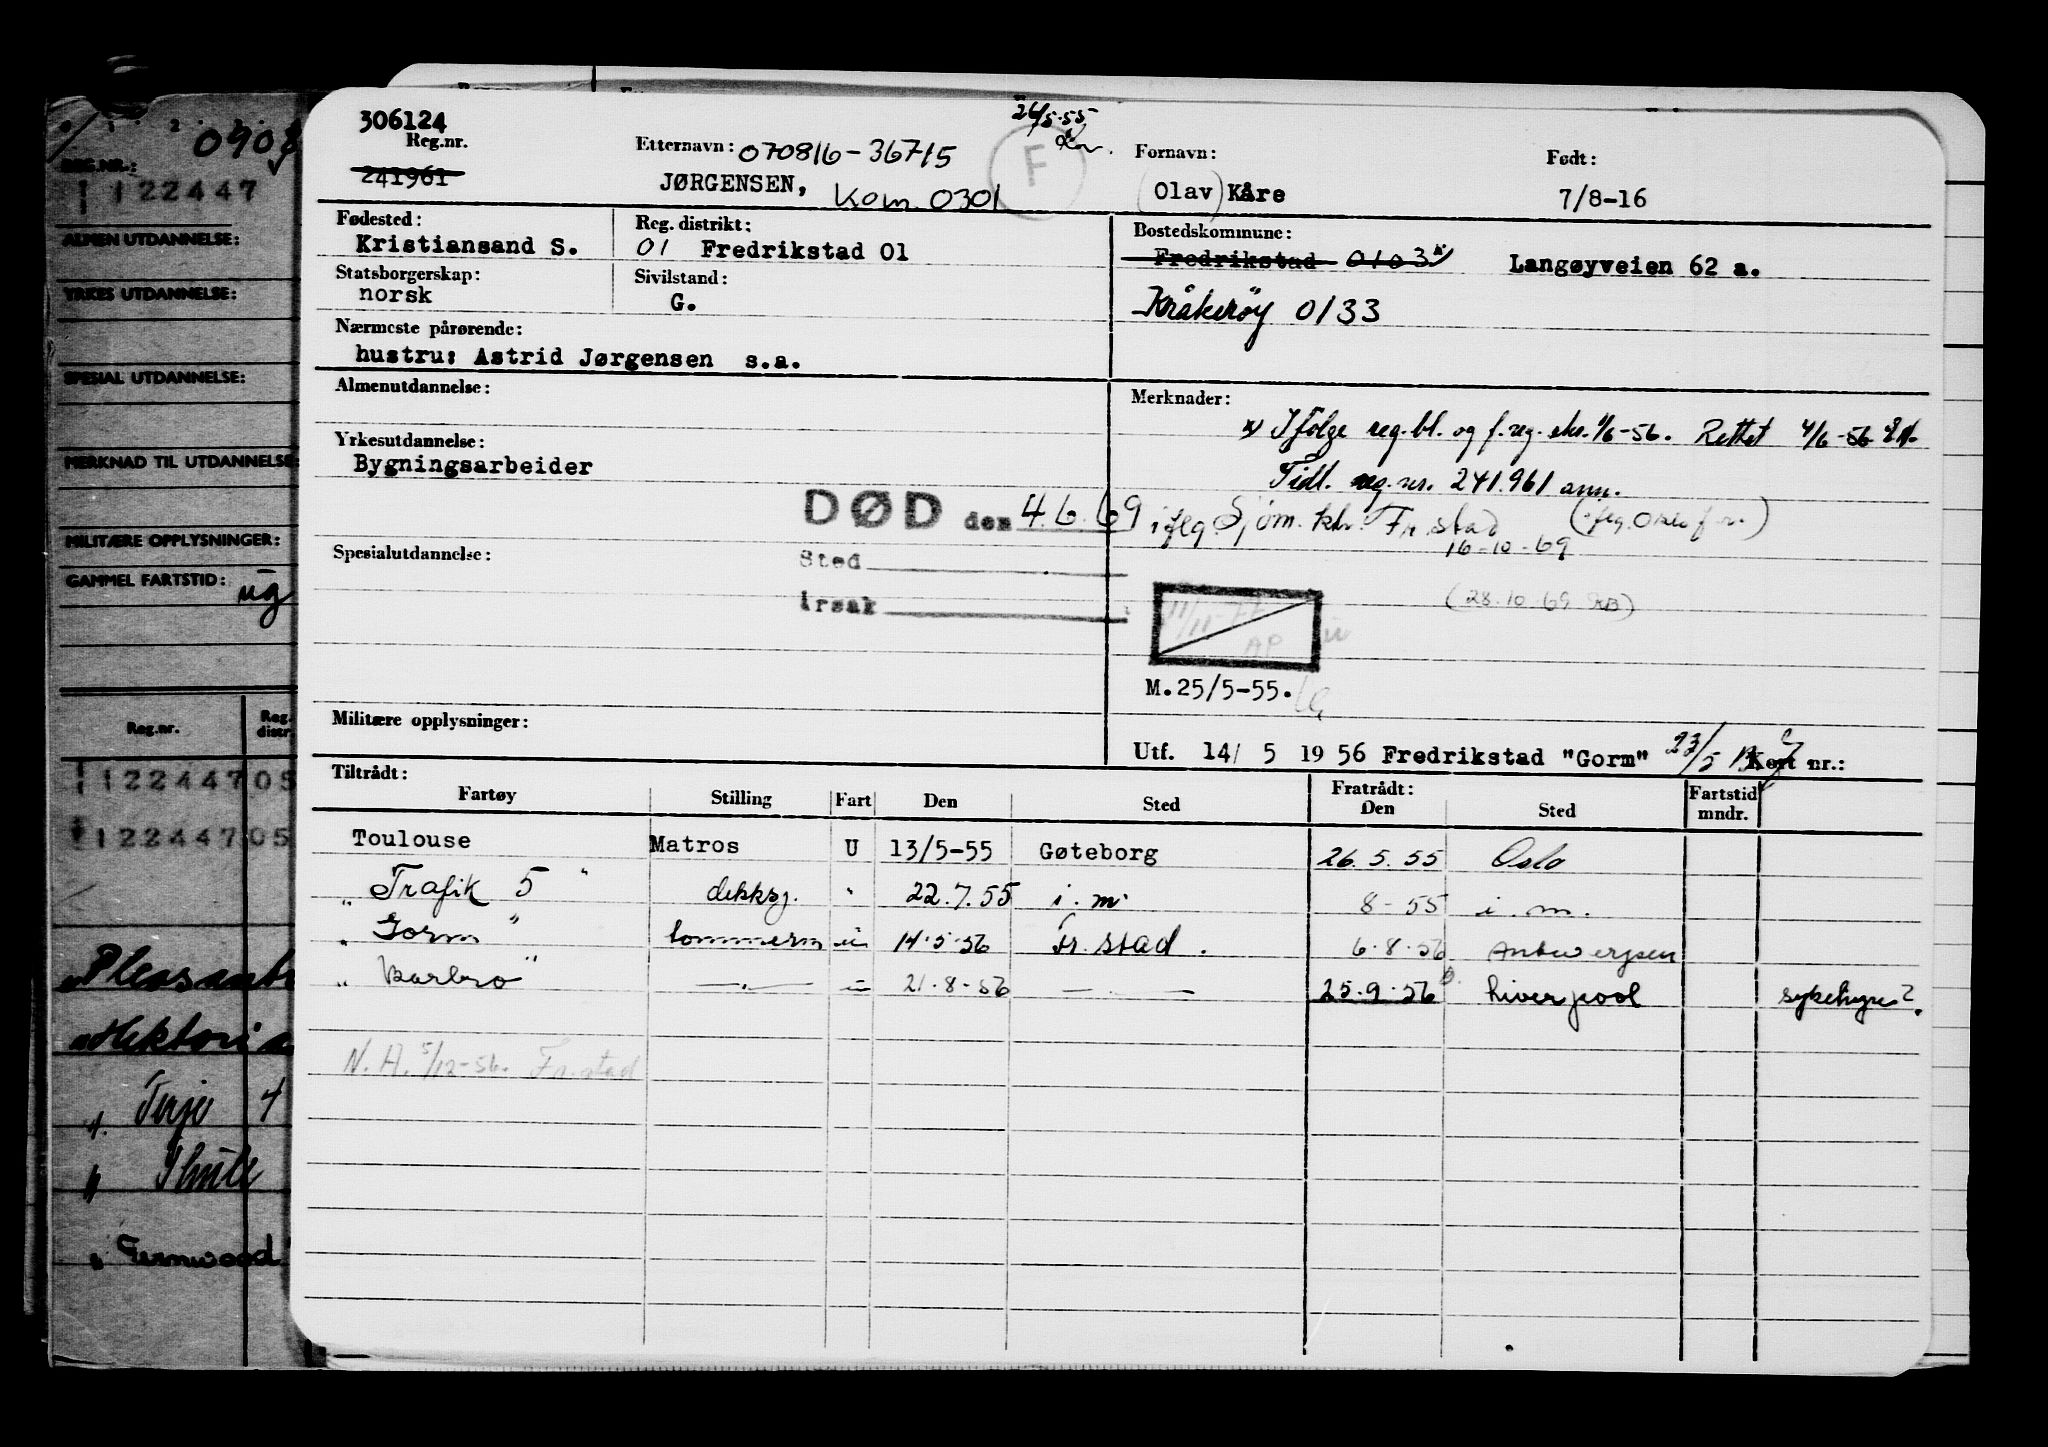 306124
Reg.nr.
241961
Etternavn: 070816-36715
JØRGENSEN, Kom. 0301
26/5-55
F
Fornavn:
(Olav) Kåre
Født:
7/8-16
Fødested:
Kristiansand S.
Reg. distrikt:
01 Fredrikstad 01
Bostedskommune:
Fredrikstad 0103 Langøyveien 62 a.
Kråkerøy 0133
Statsborgerskap:
norsk
Sivilstand:
G.
Nærmeste pårørende:
hustru: Astrid Jørgensen s.a.
Almenutdannelse:
Merknader:
x) Ifølge reg.bl. og f.reg. skr. 1/6-56. Rettet 4/6-56
Tidl. reg.nr. 241.961 ann.
Yrkesutdannelse:
Bygningsarbeider
DØD den 4.6.69 iflg. Sjøm.ktr. Fr.stad
16-10-69
(28.10.69
Sted
Årsak
Spesialutdannelse:
M.25/5-55.
Militære opplysninger:
Utf. 14/ 5 19 56 Fredrikstad "Gorm" 23/5 Kort nr.:
Tiltrådt:
Fartøy Stilling Fart Den Sted
Fratrådt:
Den Sted
Fartstid
mndr.
Toulouse Matros U 13/5-55 Gøteborg 26.5.55 Oslo
" Trafik 5 " dekksg. " 22.7.55 i.m. 8-55 i.m.
" Gorm " tømmerm 14.5.56 Fr.stad. 6.8.56 Antwerpen
" Barbro " —.— 21.8.56 —.— 25.9.56 Liverpool
N.A. 5/12-56. Fr.stad
0903
REG.NR.:
122447
ALMEN UTDANNELSE:
YRKES UTDANNELSE:
SPESIAL UTDANNELSE:
MERKNAD TIL UTDANNELSE:
MILITÆRE OPPLYSNINGER:
GAMMEL FARTSTID: ug
Reg.nr. Reg. distr.
122447 05
122447 05
" Terje 4
" Thule
" Fernwood